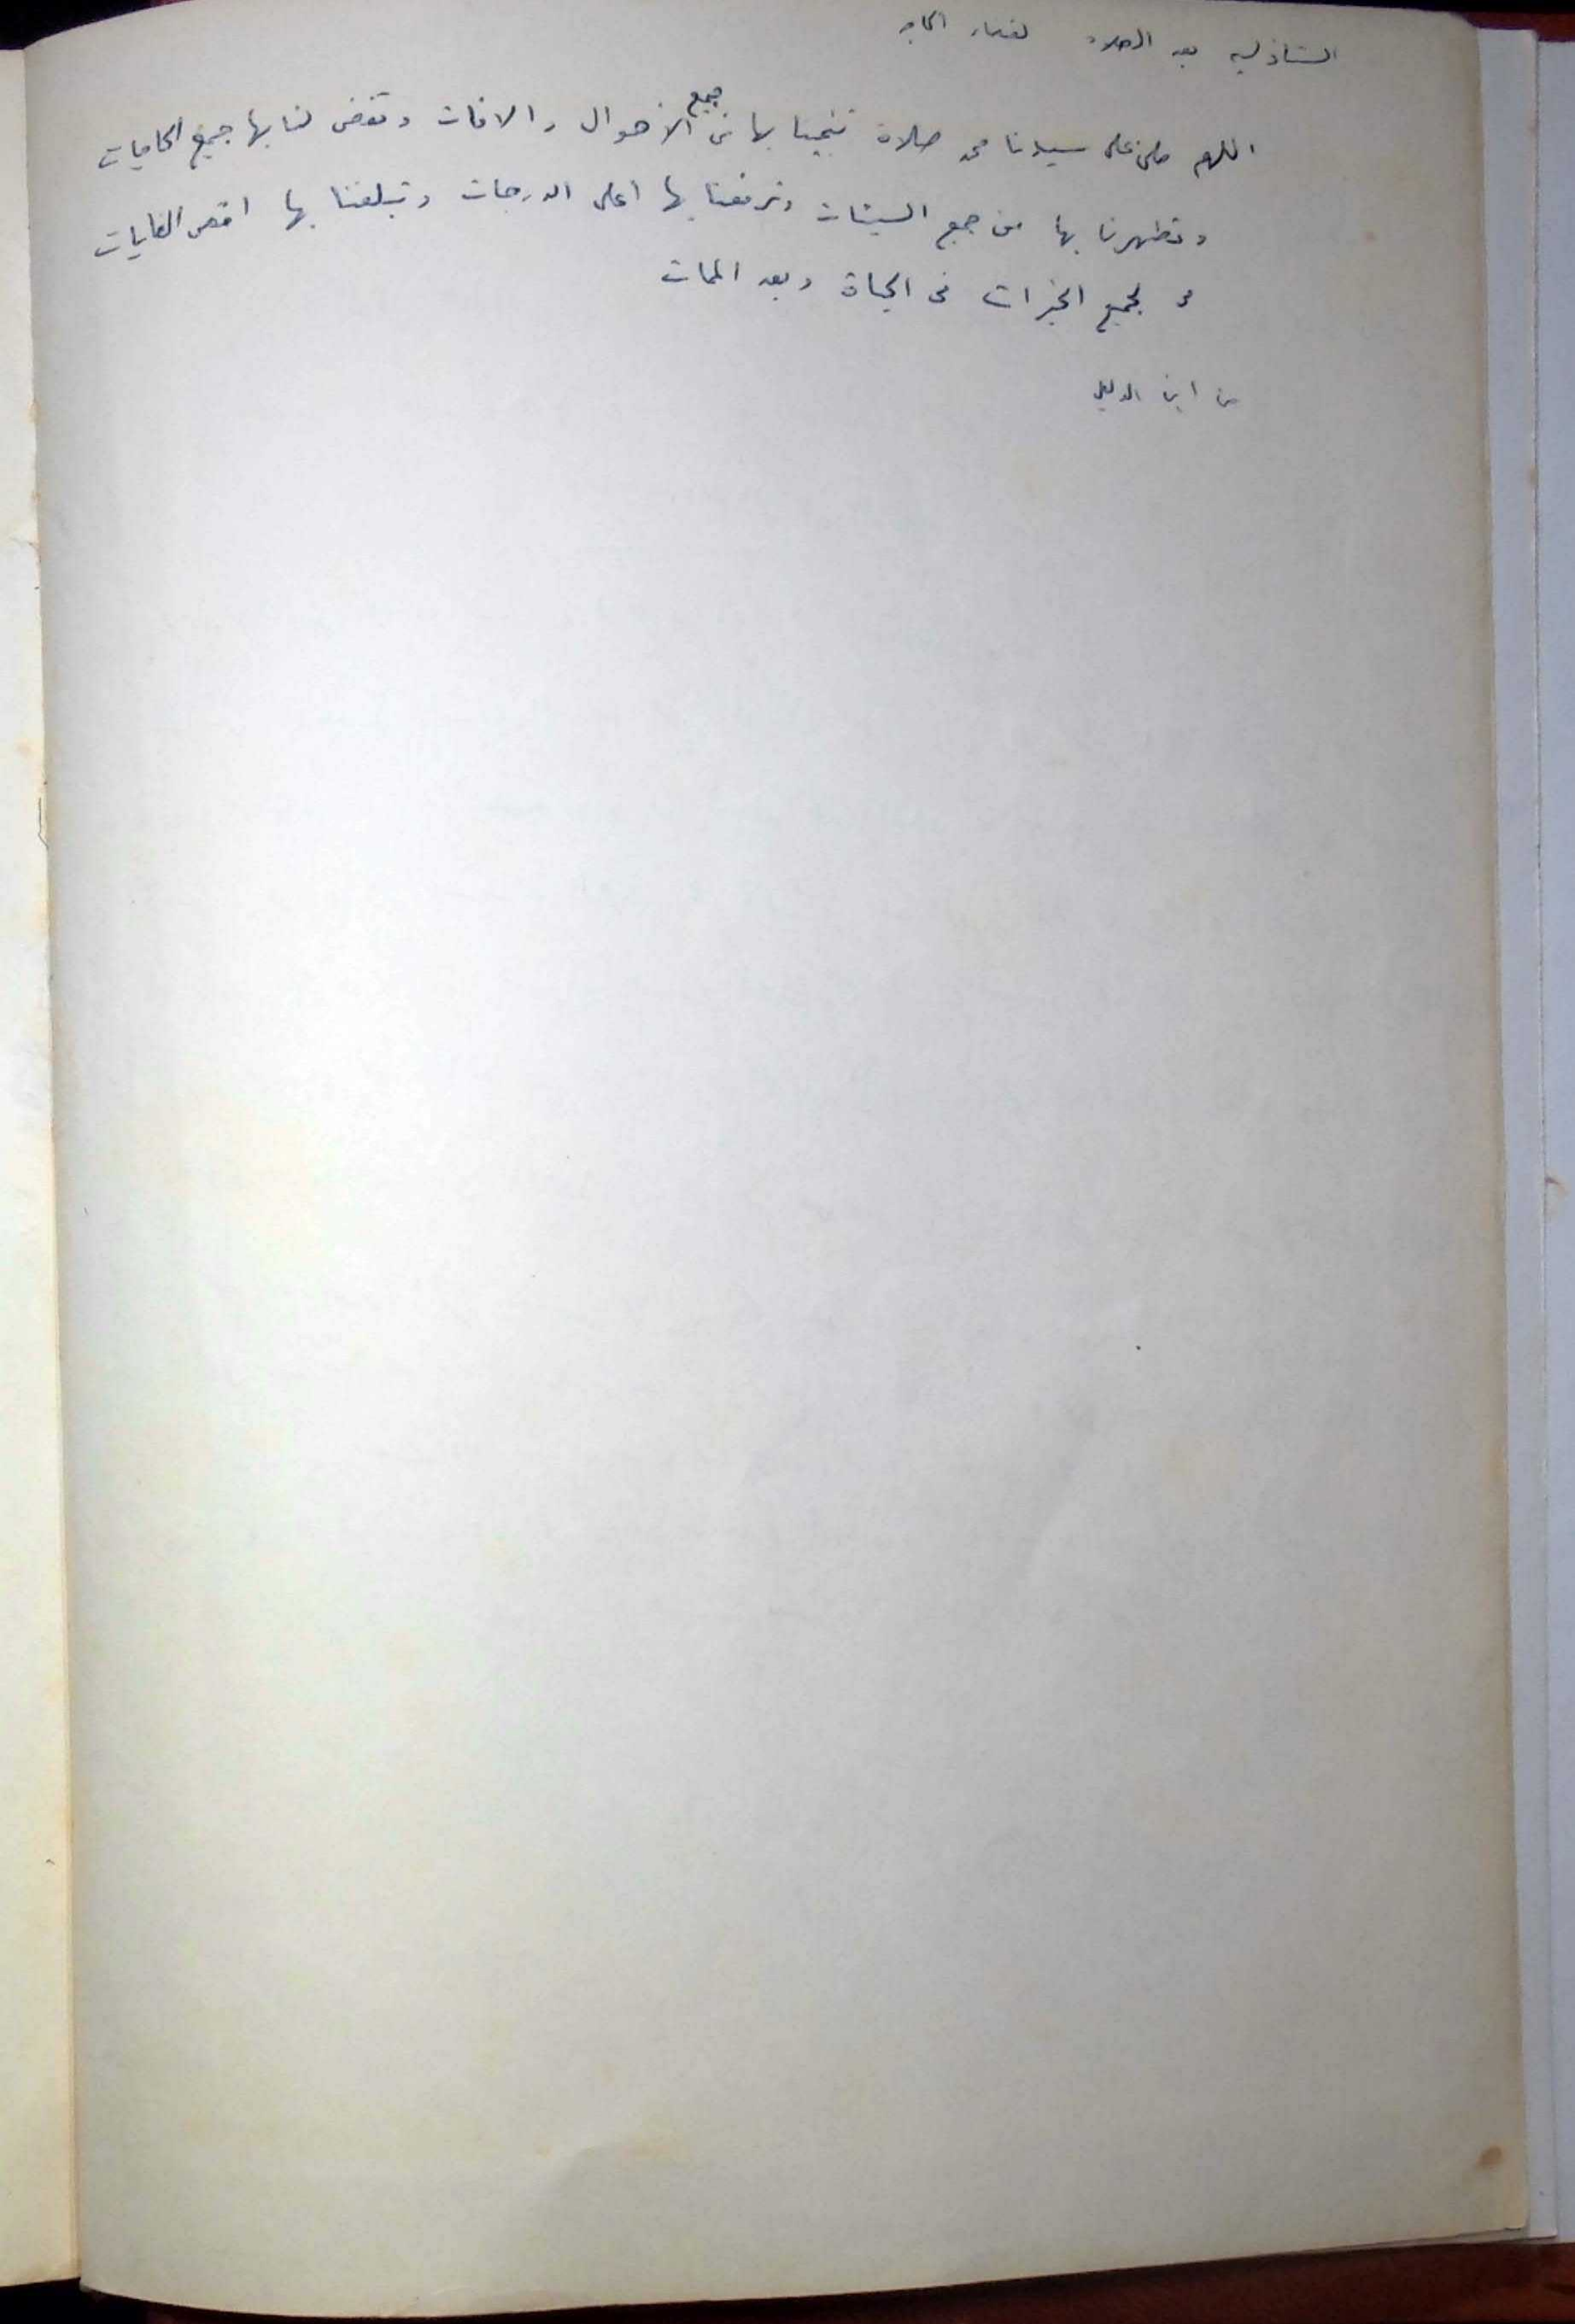 الشاذليه بعد الصلاه لقضاء الحاجه
اللهم صلى على سيدنا محمد صلاة تنجينا بها من جميع الاهوال والافات وتقضى لنا بها جميع الحاجات
وتطهرنا بها من جميع السيئات وترفعنا بها اعلى الدرجات وتبلغنا بها اقصى الغايات
من جميع الخيرات فى الحياة وبعد الممات
من ابن